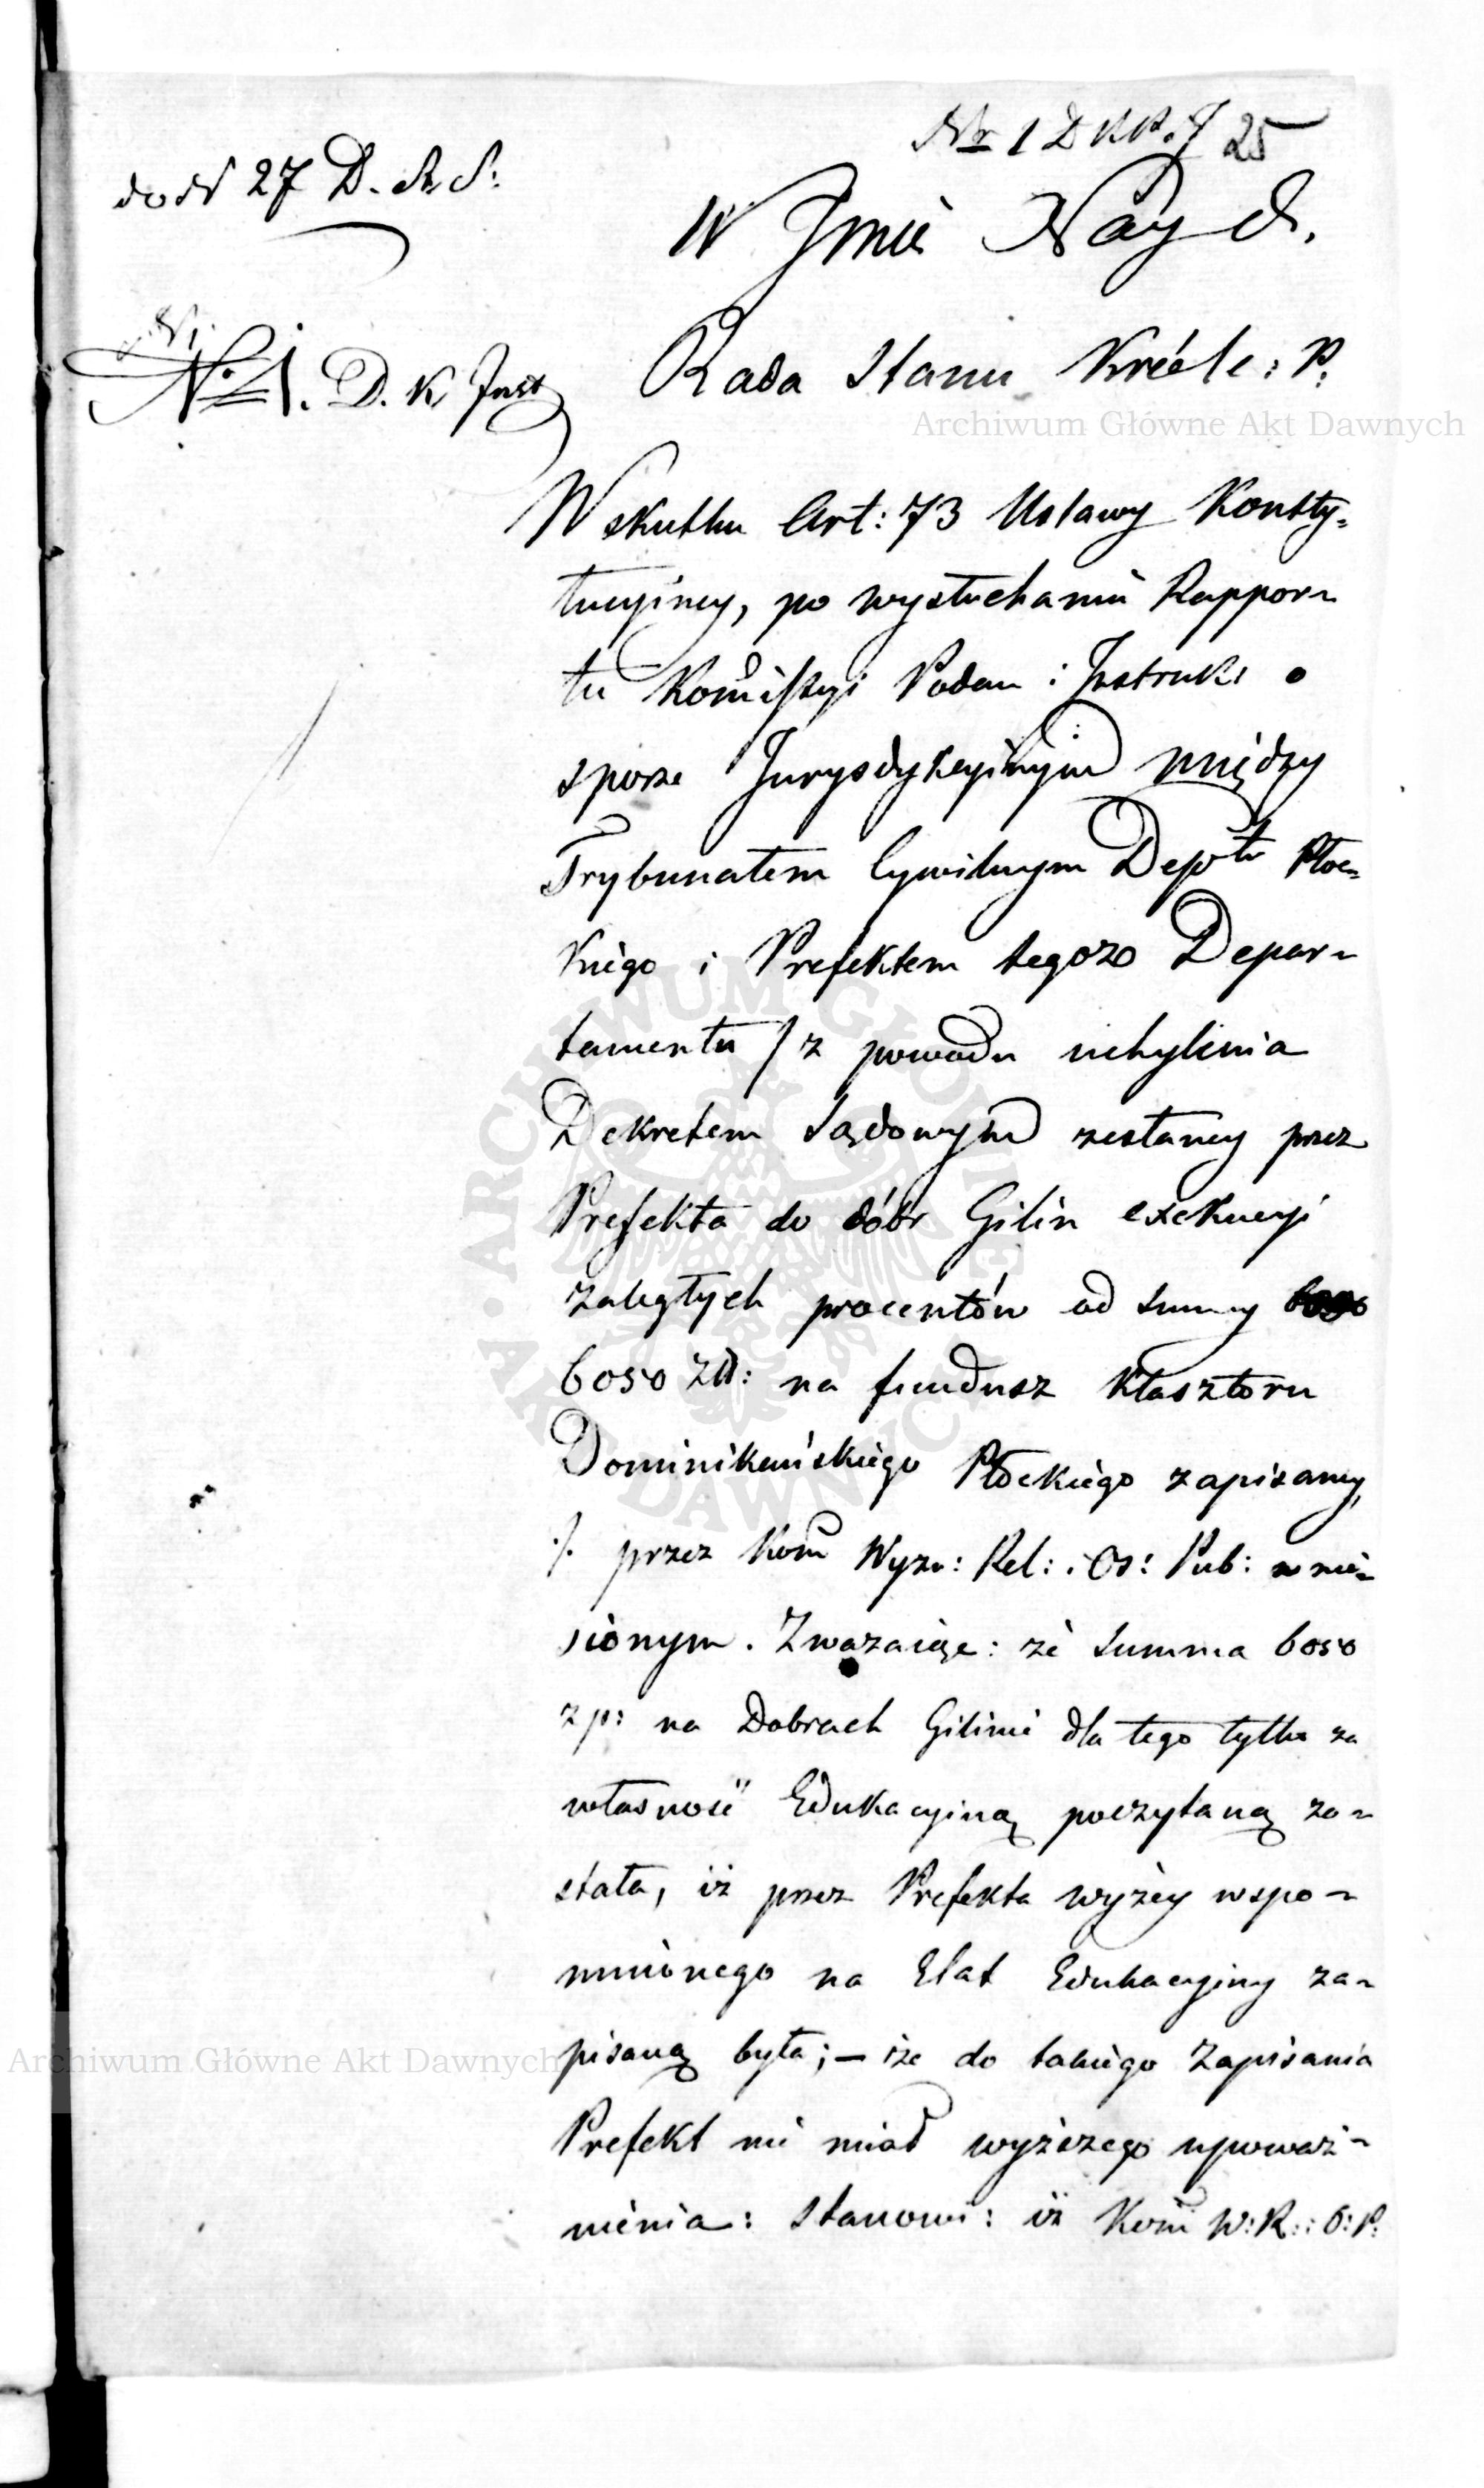 Nr 1 D K P. J 25
do N 27 D. R. S:
W Jmie Nay J.
N. 1. D. K. Jnst
Rada Stanu Króle: P:
Archiwum Główne Akt Dawnych
W skutku Art: 73 Ustawy Konsty=
tucyiney, po wysłuchaniu Rappor=
tu Komissyi Podan i Jnstrukc o
sporze Jurysdykcyinym między
Trybunałem Cywilnym Depttu Płoc=
kiego i Prefektem tegoż Depar=
tamentu / z powodu uchylenia
Dekretem Sądowym zesłaney przez
Prefekta do dóbr Gilin exekucyi
zaległych procentów od Summy
6050 Zł: na fundusz Klasztoru
Dominikańskiego Płockiego zapisaney,
/. przez Kom Wyzn: Rel: i Oś: Pub: wnie=
sionym. Zważaiąc: że Summa 6050
zp: na Dobrach Gilinie dla tego tylko za
własność Edukacyiną poczytaną zo=
stała, iż przez Prefekta wyżey wspo=
mnionego na Etat Edukacyiny za=
pisaną była; – że do takiego zapisania
Archiwum Główne Akt Dawnych
Prefekt nie miał wyższego upoważ=
nienia: Stanowi: iż Kom W: R: i O: P: